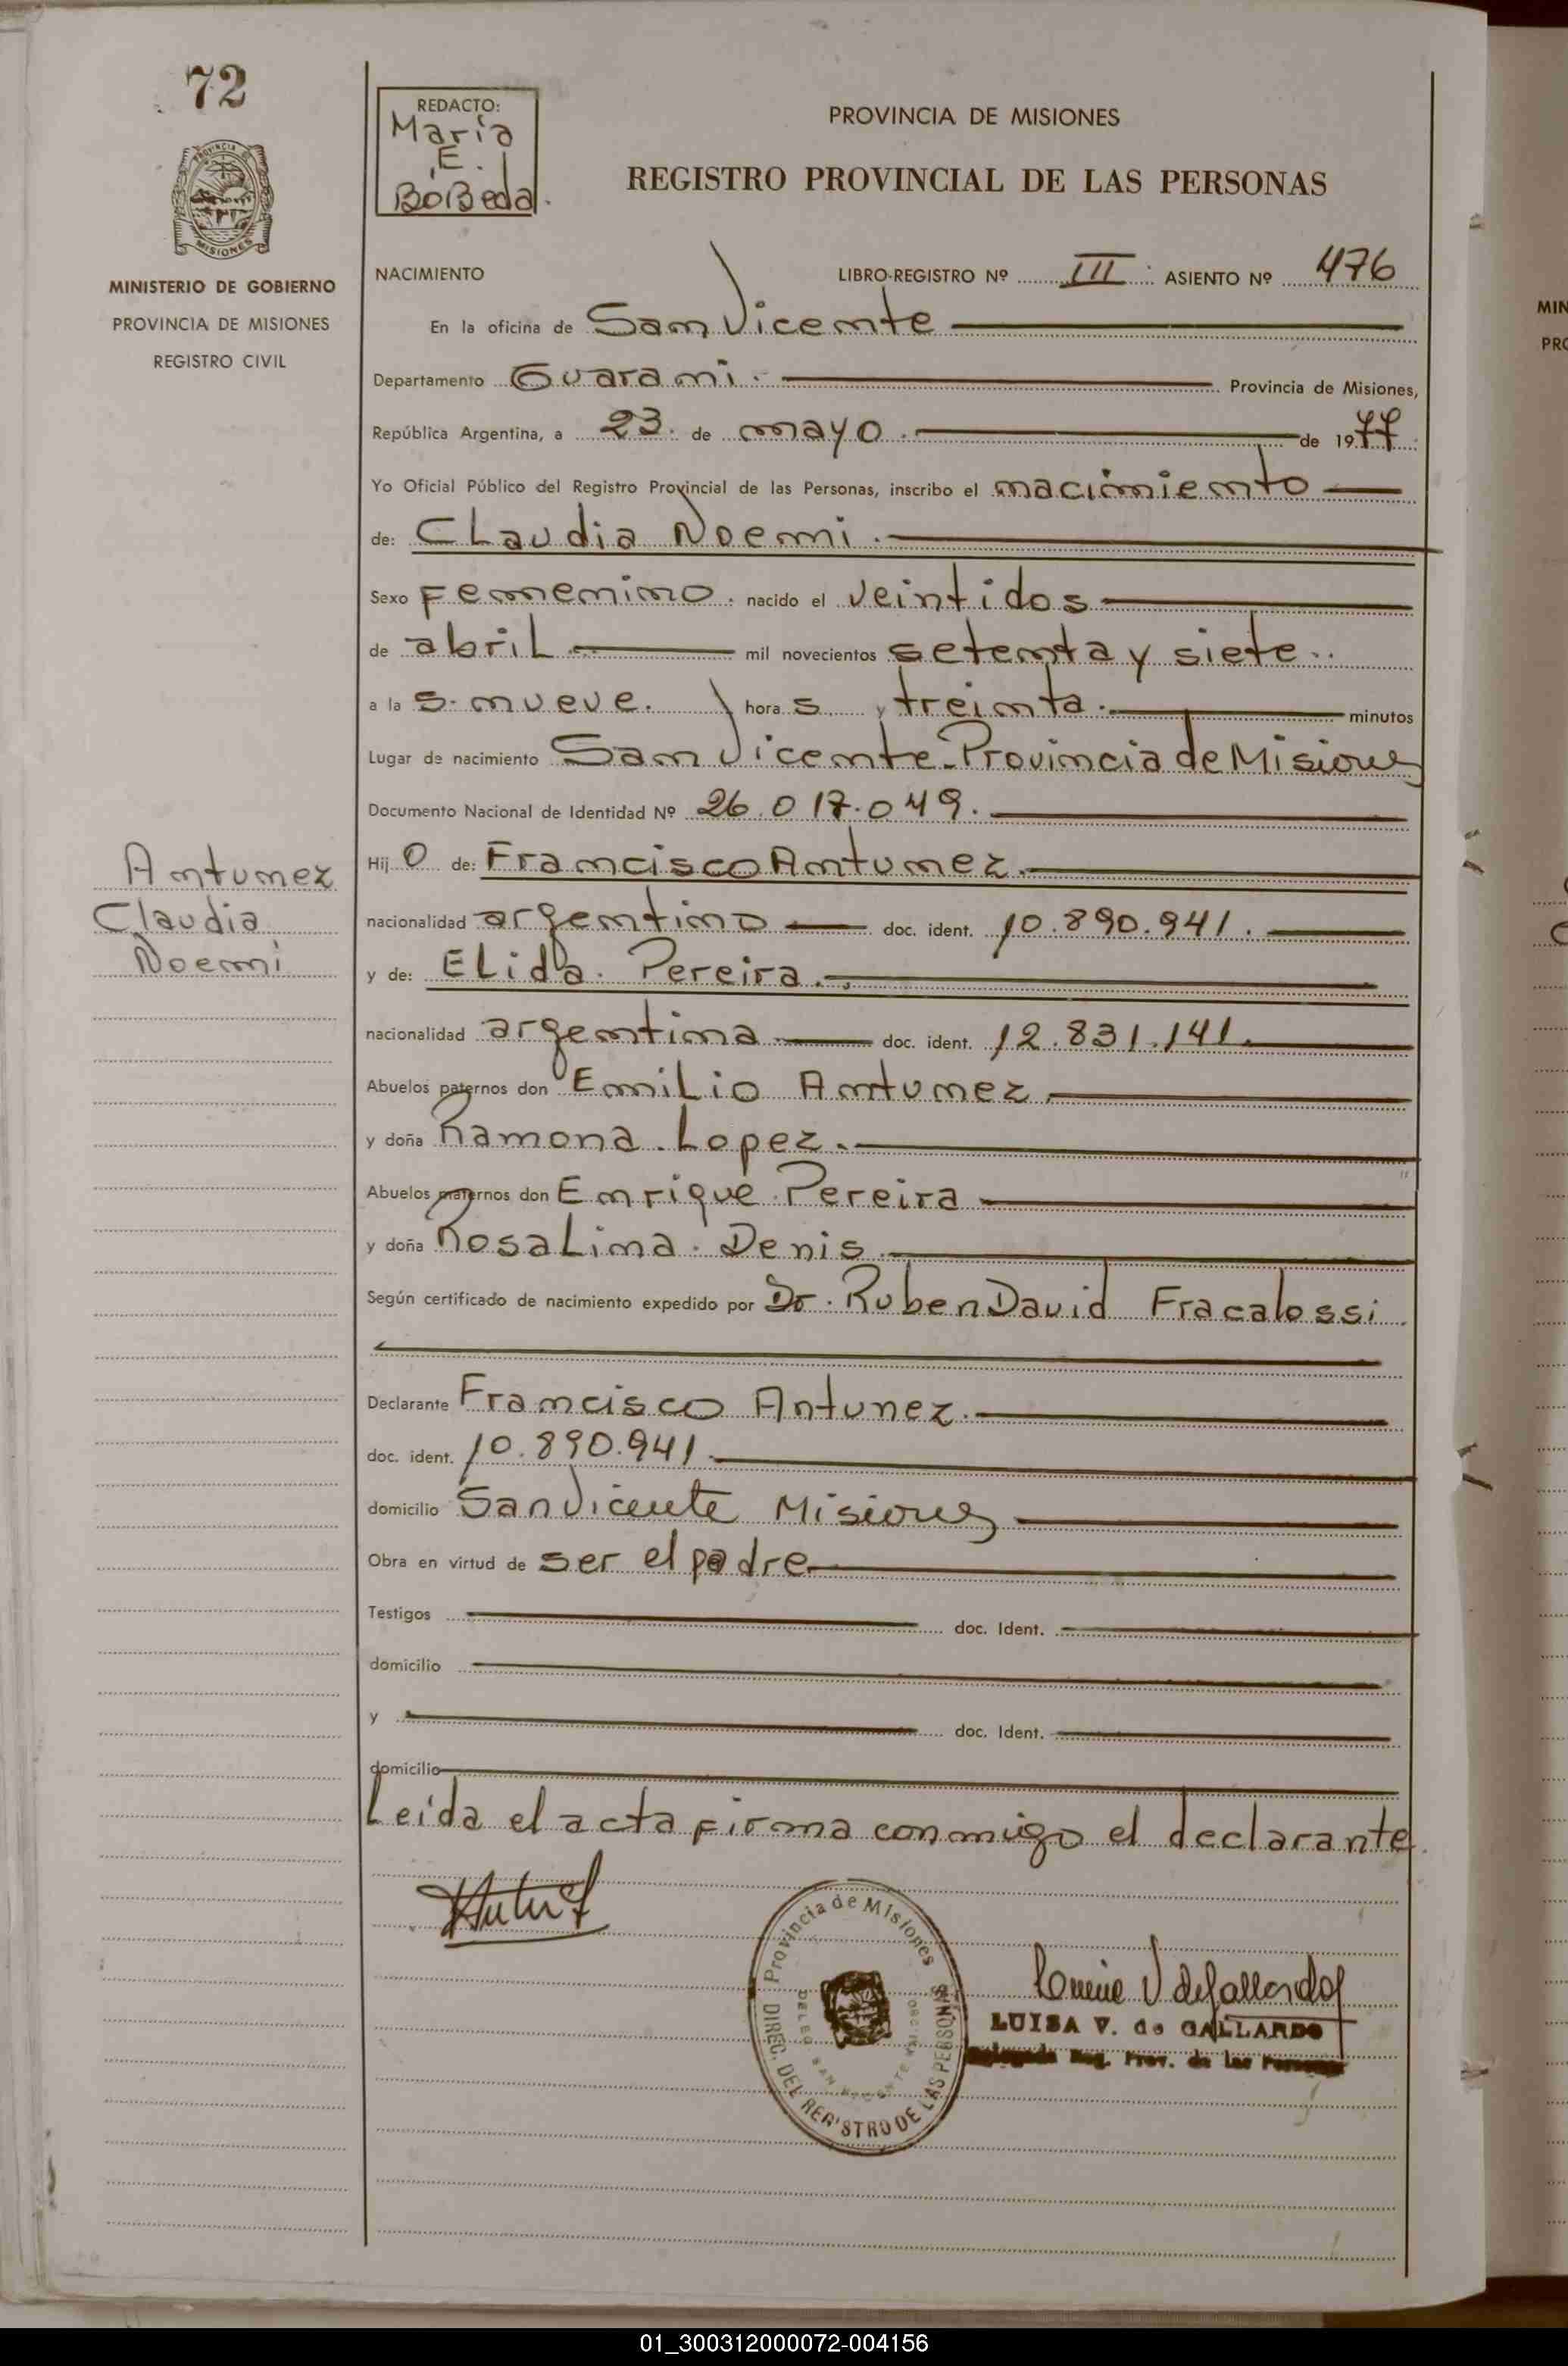 72
REDACTO:
Maria
E.
BoBeda.
PROVINCIA DE MISIONES
REGISTRO PROVINCIAL DE LAS PERSONAS
PROVINCIA
MISIONES
MINISTERIO DE GOBIERNO
PROVINCIA DE MISIONES
REGISTRO CIVIL
NACIMIENTO LIBRO-REGISTRO Nº III ASIENTO Nº 476
En la oficina de San Vicente
Departamento Guarani. Provincia de Misiones,
República Argentina, a 23. de mayo. de 1977
Yo Oficial Público del Registro Provincial de las Personas, inscribo el nacimiento
de: Claudia Noemi.
Sexo Femenino. nacido el veintidos
de abril mil novecientos setenta y siete..
a la s. nueve. hora s y treinta. minutos
Lugar de nacimiento San Vicente-Provincia de Misiones
Documento Nacional de Identidad Nº 26.017.049.
Hij o de: Francisco Antunez.
nacionalidad argentino doc. ident. 10.890.941.
y de: Elida. Pereira.
nacionalidad argentina doc. ident. 12.831.141.
Abuelos paternos don Emilio Antunez.
y doña Ramona. Lopez.
Abuelos maternos don Enrique. Pereira
y doña Rosa Lima. Denis.
Según certificado de nacimiento expedido por Dr. Ruben David Fracalossi.
Declarante Francisco Antunez.
doc. ident. 10.890.941.
domicilio San Vicente Misiones
Obra en virtud de ser el padre
Testigos doc. Ident.
domicilio
y doc. Ident.
domicilio
Leida el acta firma conmigo el declarante.
Antunez
Claudia
Noemi
Provincia de Misiones
DIREC. DEL REGISTRO DE LAS PERSONAS
LUISA V. de GALLARDO
Delegada Reg. Prov. de las Personas
MIN
PRO
01_300312000072-004156